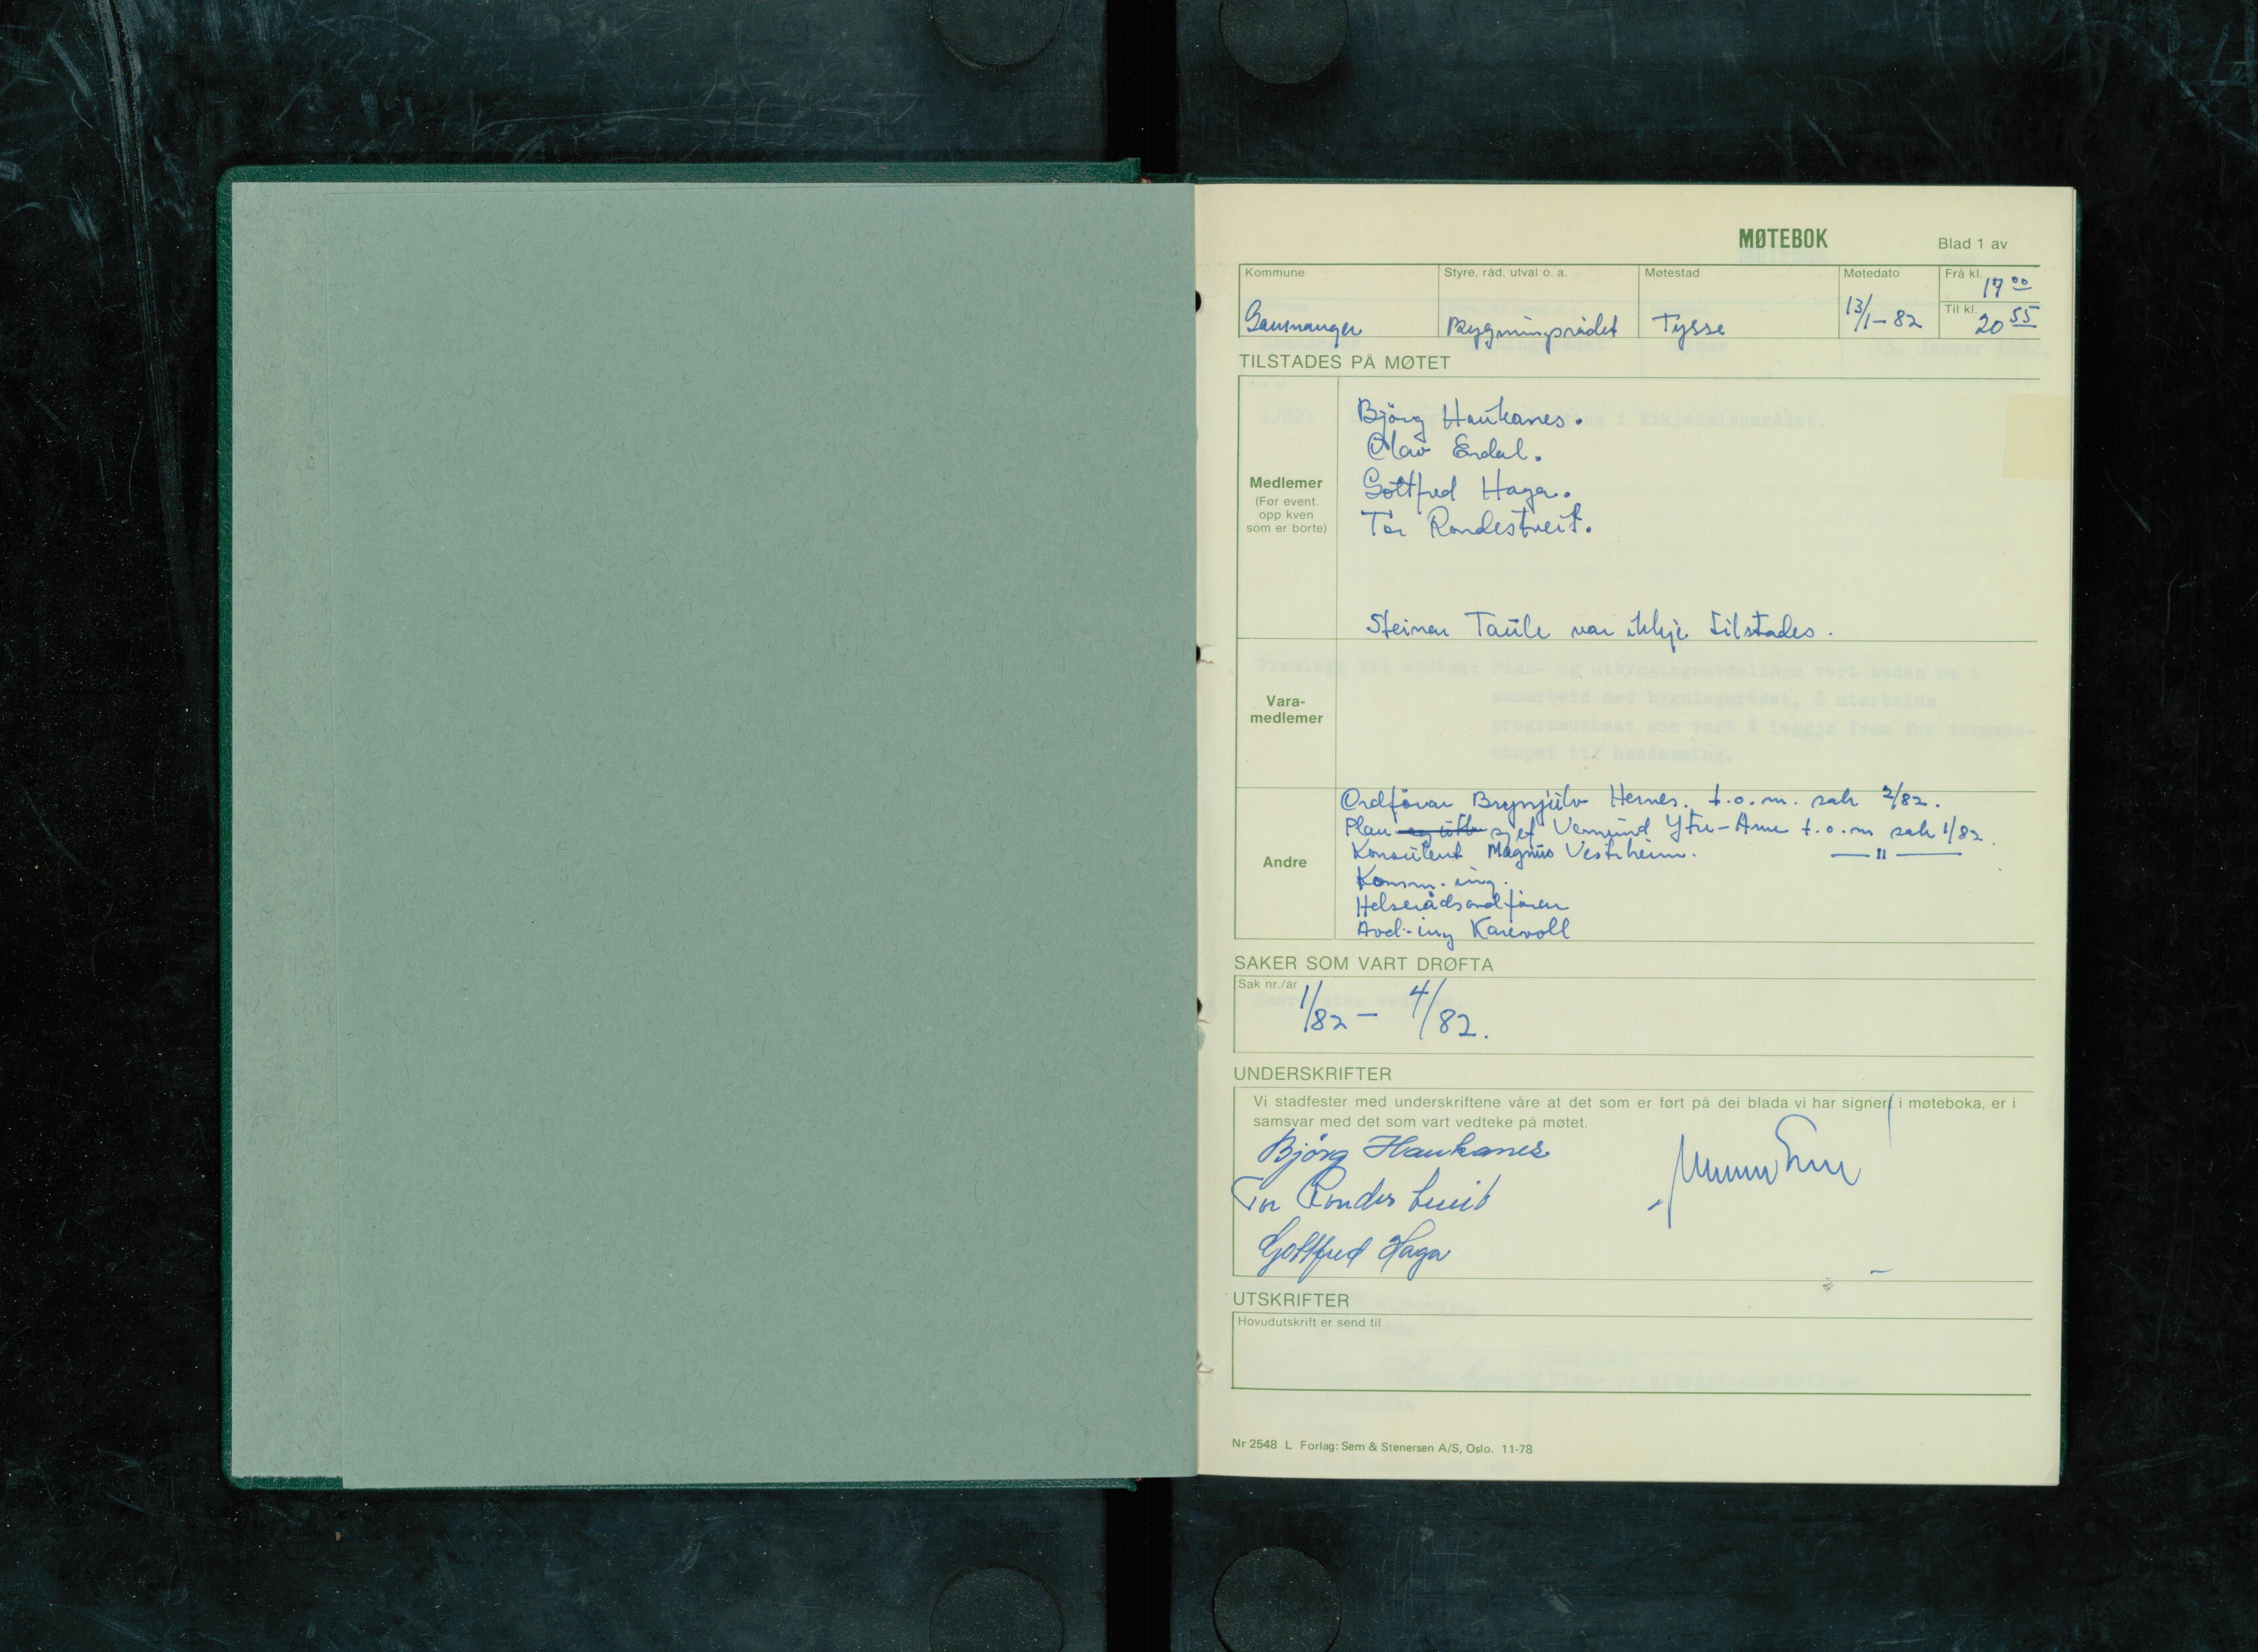 MØTEBOK
Blad 1 av
Kommune
Styre, råd, utval o. a.
Møtestad
Møtedato
Frå kl. 17 00
Samnanger
Bygningsrådet
Tysse
13/1-82
Til kl. 20 55
TILSTADES PÅ MØTET
Medlemer
(Før event.
opp kven
som er borte)
Björg Haukanes.
Olav Erdal.
Gottfred Haga.
Tor Rondestveit.
Steinar Taule var ikkje tilstades.
Vara-
medlemer
Andre
Ordförar Brynjulv Hernes. t.o.m. sak 2/82.
Plan sjef Vermund Ytre-Arne t.o.m sak 1/82.
Konsulent Magnus Vestrheim. — " —
Komm. ing.
Helserådsordförar
Avd-ing Karevoll
SAKER SOM VART DRØFTA
Sak nr./år
1/82 – 4/82.
UNDERSKRIFTER
Vi stadfester med underskriftene våre at det som er ført på dei blada vi har signert i møteboka, er i
samsvar med det som vart vedteke på møtet.
Björg Haukanes
Tor Rondestveit
Gottfred Haga
UTSKRIFTER
Hovudutskrift er send til
Nr 2548 L Forlag: Sem & Stenersen A/S, Oslo. 11-78